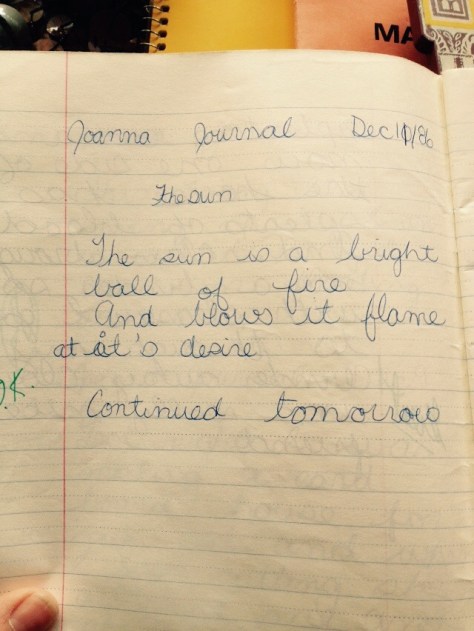 MA
Joanna Journal Dec 10/86
The sun
The sun is a bright
ball of fire
And blows it flame
at it's desire
O.K.
Continued tomorrow